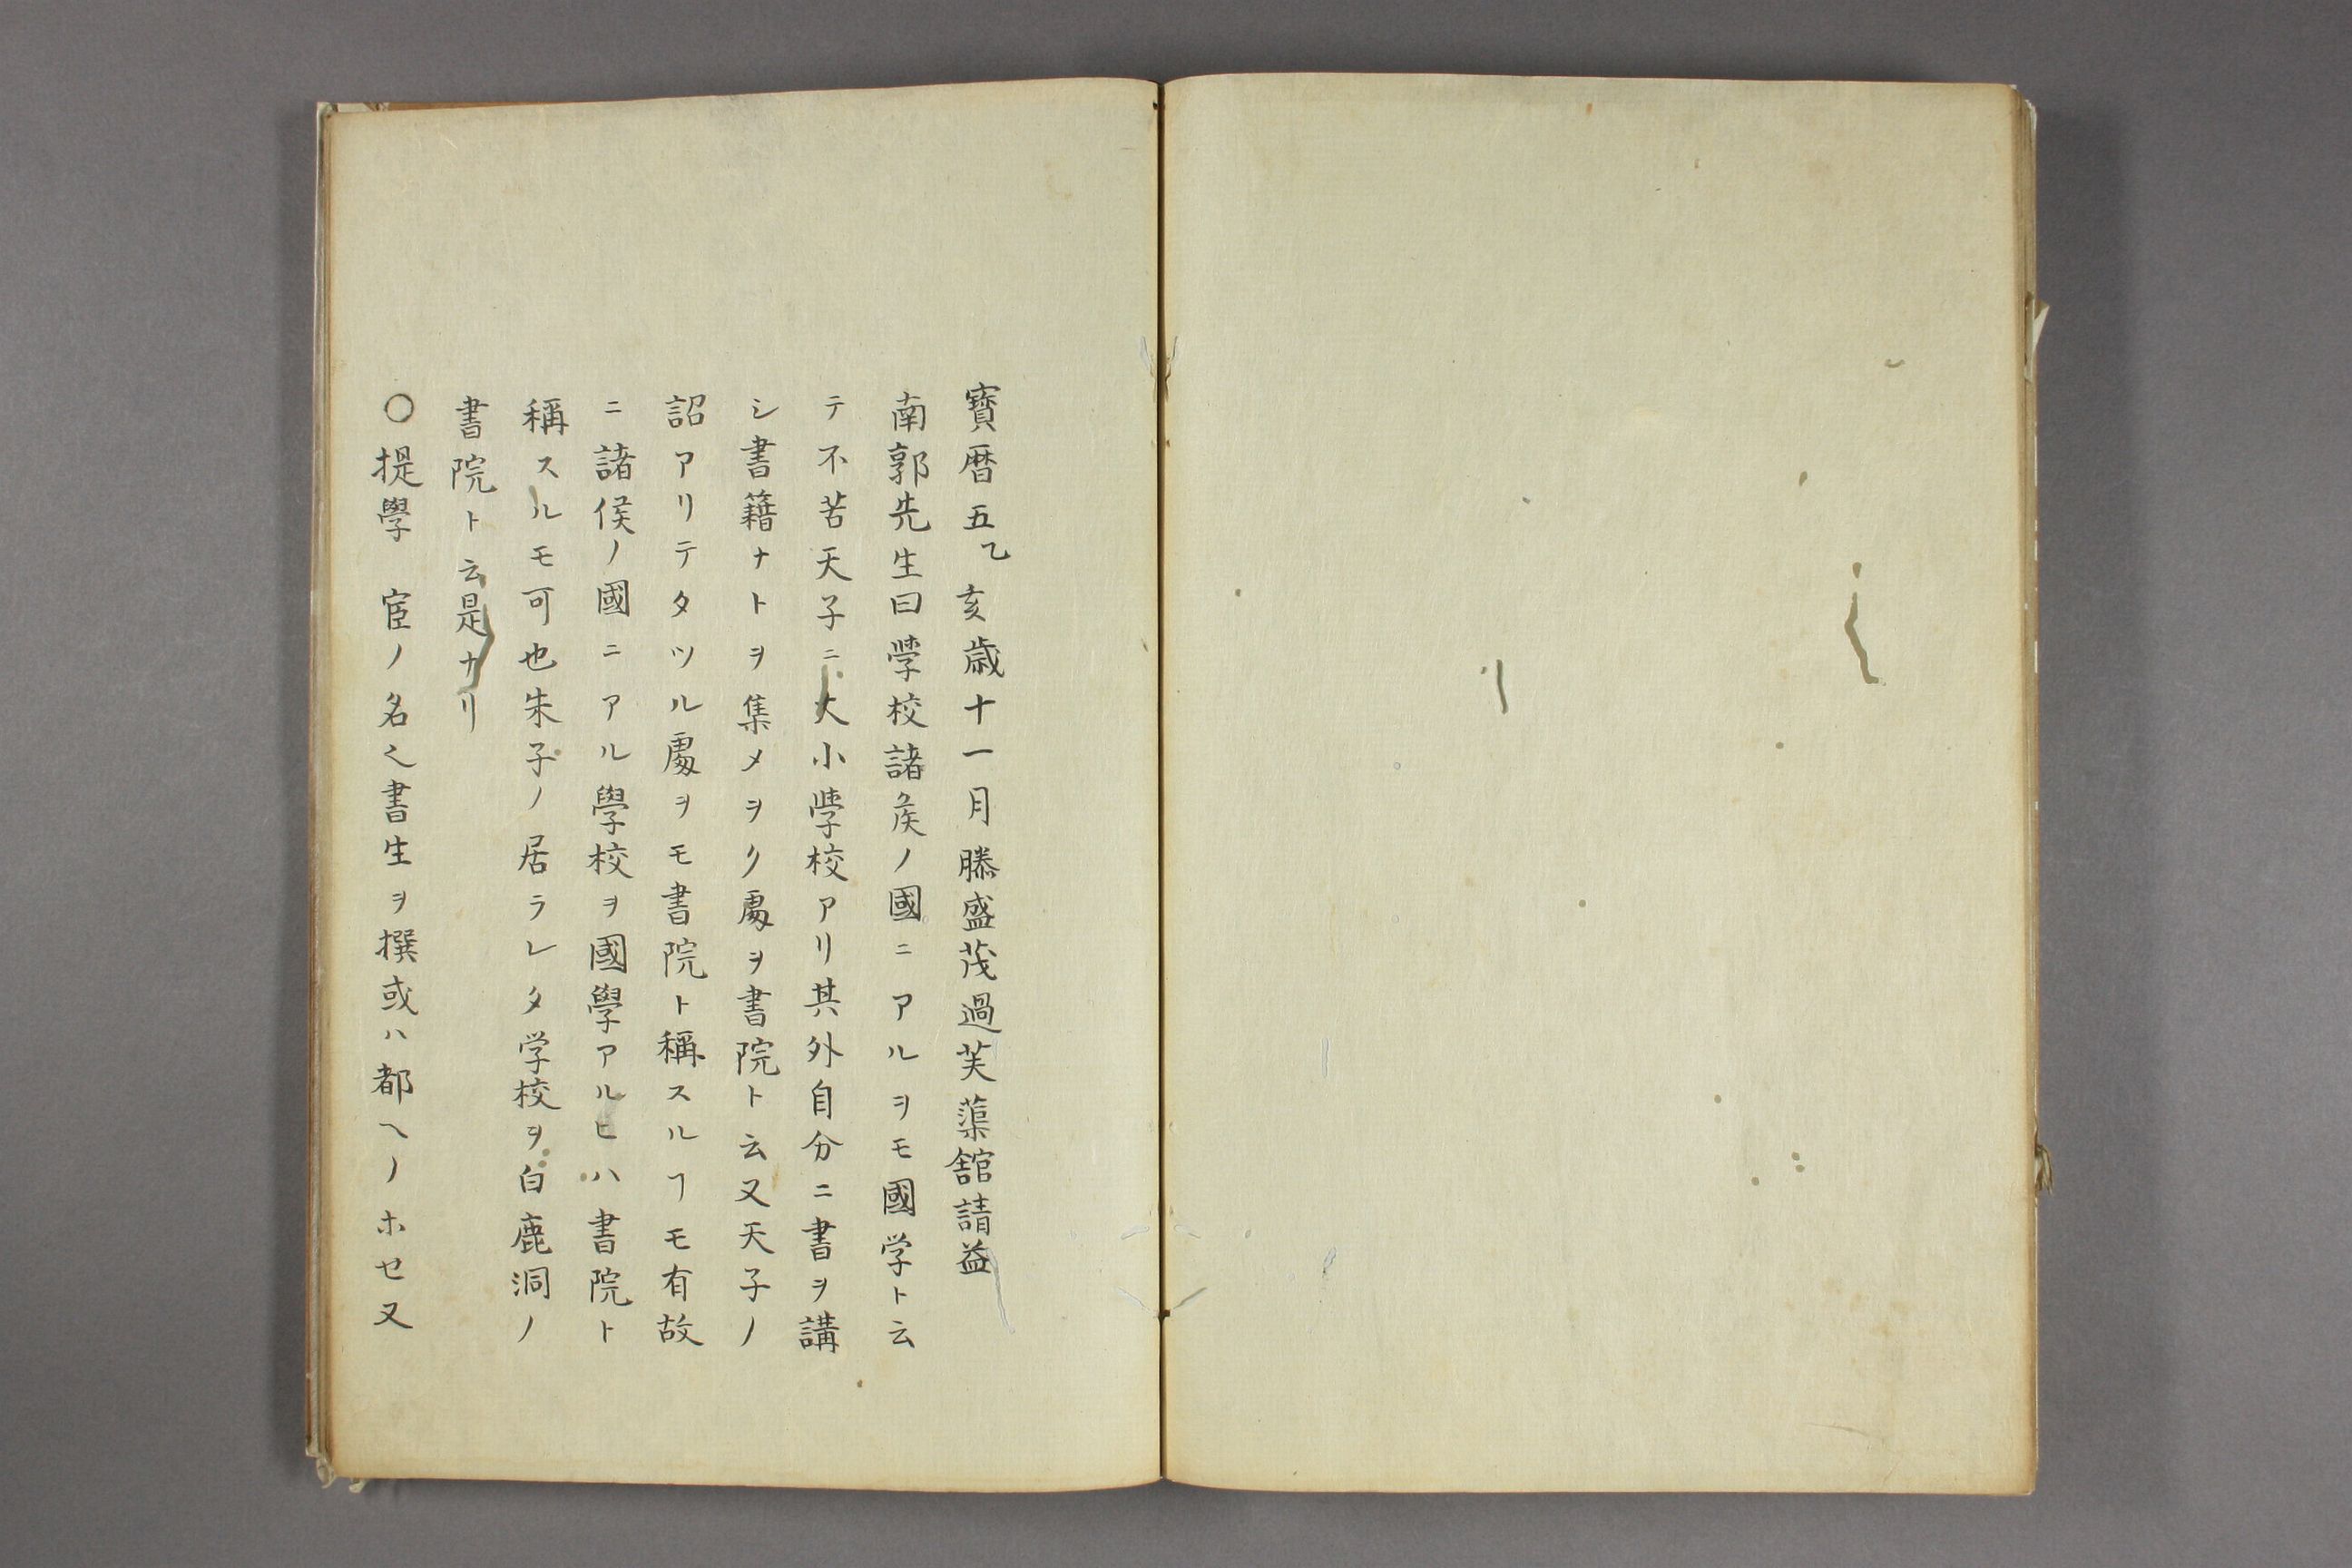 寳暦五乙亥歳十一月滕盛茂過芙蕖舘請益
南郭先生曰斈校諸矦ノ國ニアルヲモ國学ト云
テ不苦天子ニ大小斈校アリ其外自分ニ書ヲ講
シ書籍ナトヲ集メヲク處ヲ書院ト云又天子ノ
詔アリテタツル處ヲモ書院ト稱スルヿモ有故
ニ諸侯ノ國ニアル學校ヲ國學アルヒハ書院ト
稱スルモ可也朱子ノ居ラレタ学校ヲ白鹿洞ノ
書院ト云是ナリ
〇提學 宦ノ名也書生ヲ撰或ハ都ヘノホセ又